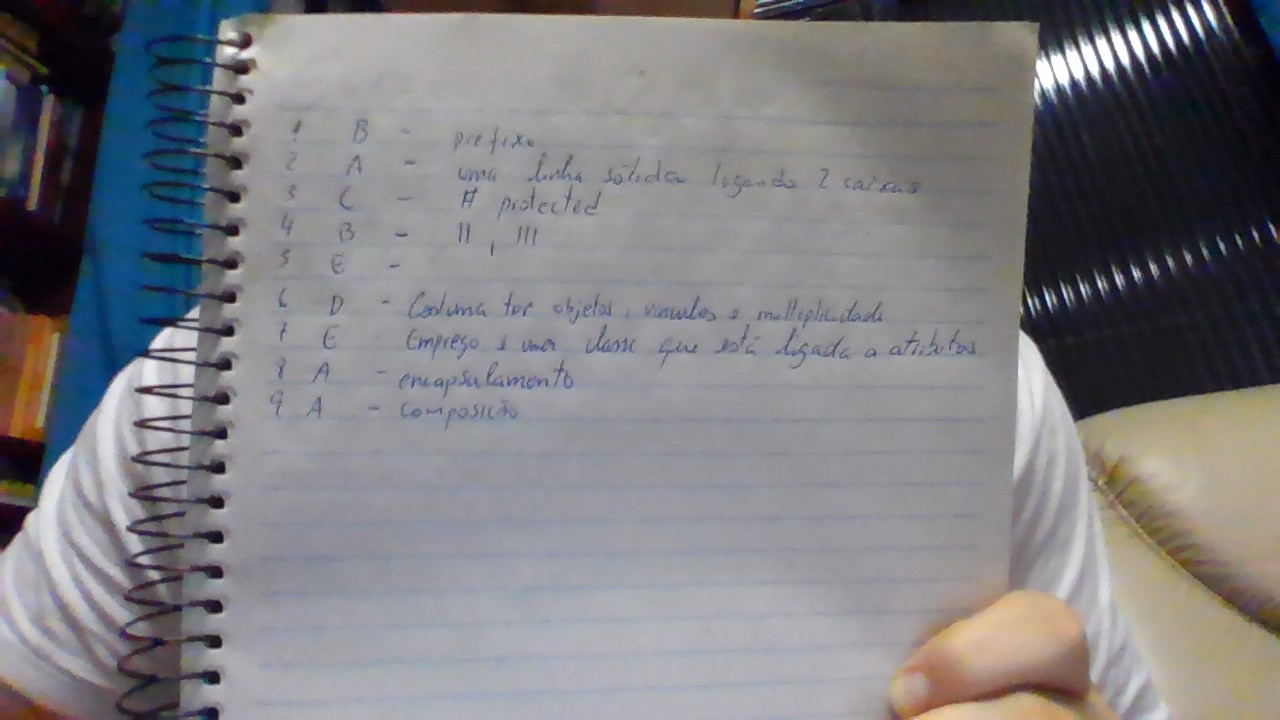 1 B - prefixo
2 A - uma linha sólida ligando 2 caixas
3 C - # protected
4 B - II, III
5 E -
6 D - Costuma ter objetos, vinculos e multiplicidade
7 E Emprego é uma classe que está ligada a atributos
8 A - encapsulamento
9 A - composição